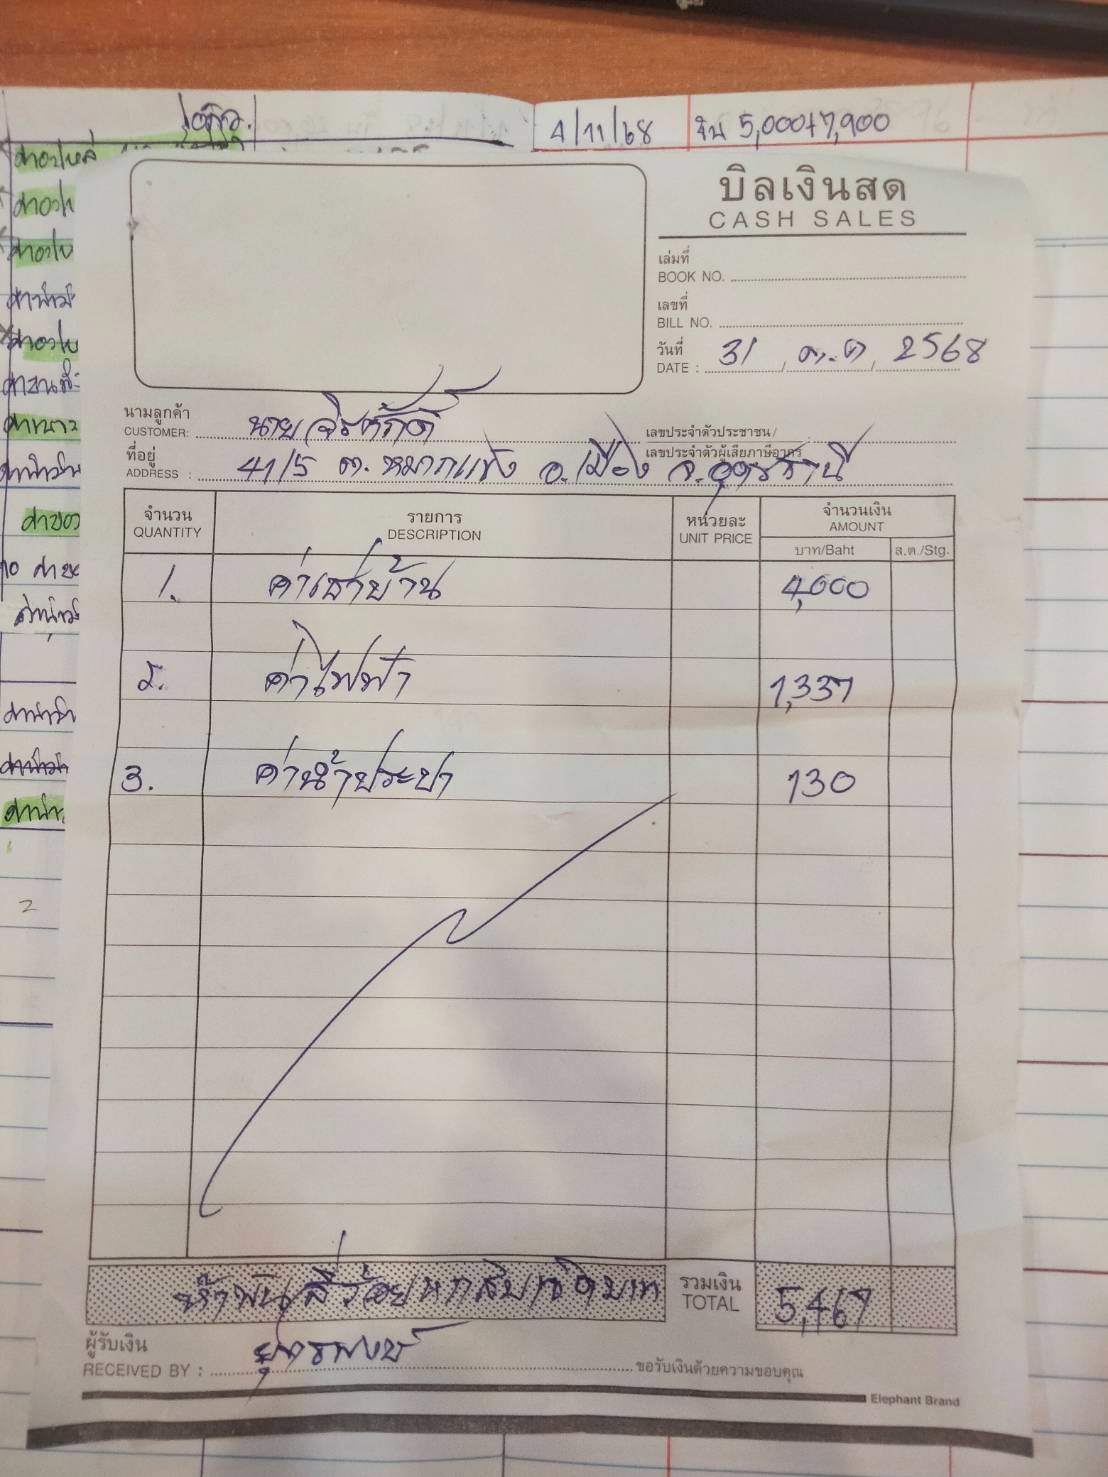 4/11/68 รับ 5,000+7,900
บิลเงินสด
CASH SALES
เล่มที่
BOOK NO.
เลขที่
BILL NO.
วันที่
DATE : 31 / ต.ค / 2568
นามลูกค้า
CUSTOMER: นายจิรศักดิ์
เลขประจำตัวประชาชน /
เลขประจำตัวผู้เสียภาษีอากร
ที่อยู่
ADDRESS : 41/5 ต.หมากแข้ง อ.เมือง จ.อุดรธานี
จำนวน รายการ หน่วยละ จำนวนเงิน
QUANTITY DESCRIPTION UNIT PRICE AMOUNT
บาท/Baht ส.ต./Stg.
1. ค่าเช่าบ้าน 4,000
2. ค่าไฟฟ้า 1,337
3. ค่าน้ำประปา 130
ห้าพันสี่ร้อยหกสิบเจ็ดบาท รวมเงิน
TOTAL 5,467
ผู้รับเงิน
RECEIVED BY : ขอรับเงินด้วยความขอบคุณ
Elephant Brand